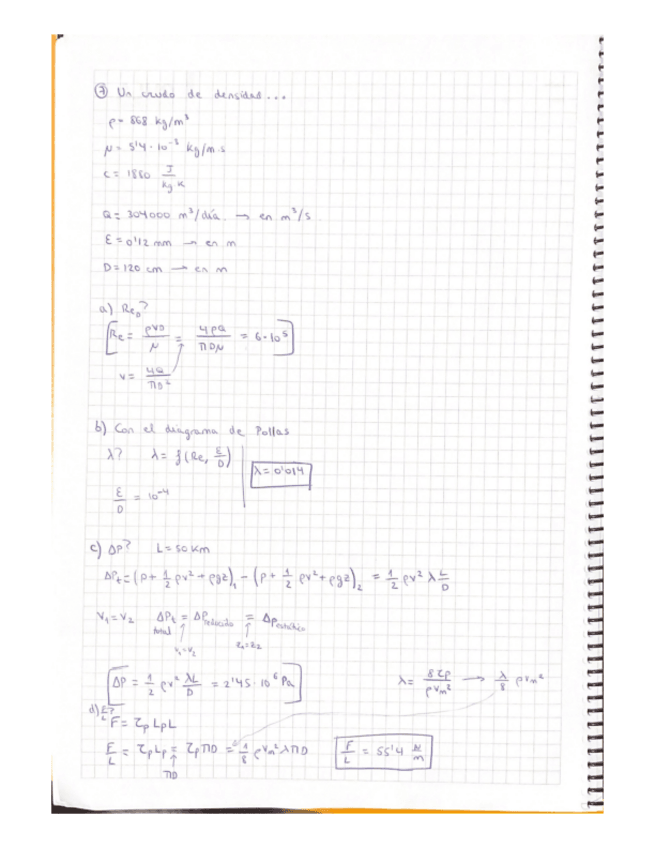 ⑦ Un crudo de densidad...
ρ = 868 kg/m³
μ = 5'4·10⁻³ kg/m·s
c = 1880 J/kg K
Q = 304000 m³/día. → en m³/s
ε = 0'12 mm → en m
D = 120 cm → en m
a) Re_D?
[Re = ρVD/μ = 4ρQ/πDμ = 6·10⁵]
v = 4Q/πD²
b) Con el diagrama de Pollas
λ? λ = f(Re, ε/D) λ = 0'014
ε/D = 10⁻⁴
c) ΔP? L = 50 km
ΔP_t = (p + 1/2 ρv² + ρgz)₁ - (p + 1/2 ρv² + ρgz)₂ = 1/2 ρv² λ L/D
V₁ = V₂ ΔP_t = ΔP_reducida = ΔP_estática
total ↑ v₁=v₂ ↑ z₁=z₂
[ΔP = 1/2 ρv² λL/D = 2'45·10⁶ Pa] λ = 8τp/ρv_m² → λ/8 ρv_m²
d) F/L?
F = τp Lp L
F/L = τp Lp = τp πD = 1/8 ρv_m² λπD F/L = 55'4 N/m
↑ πD